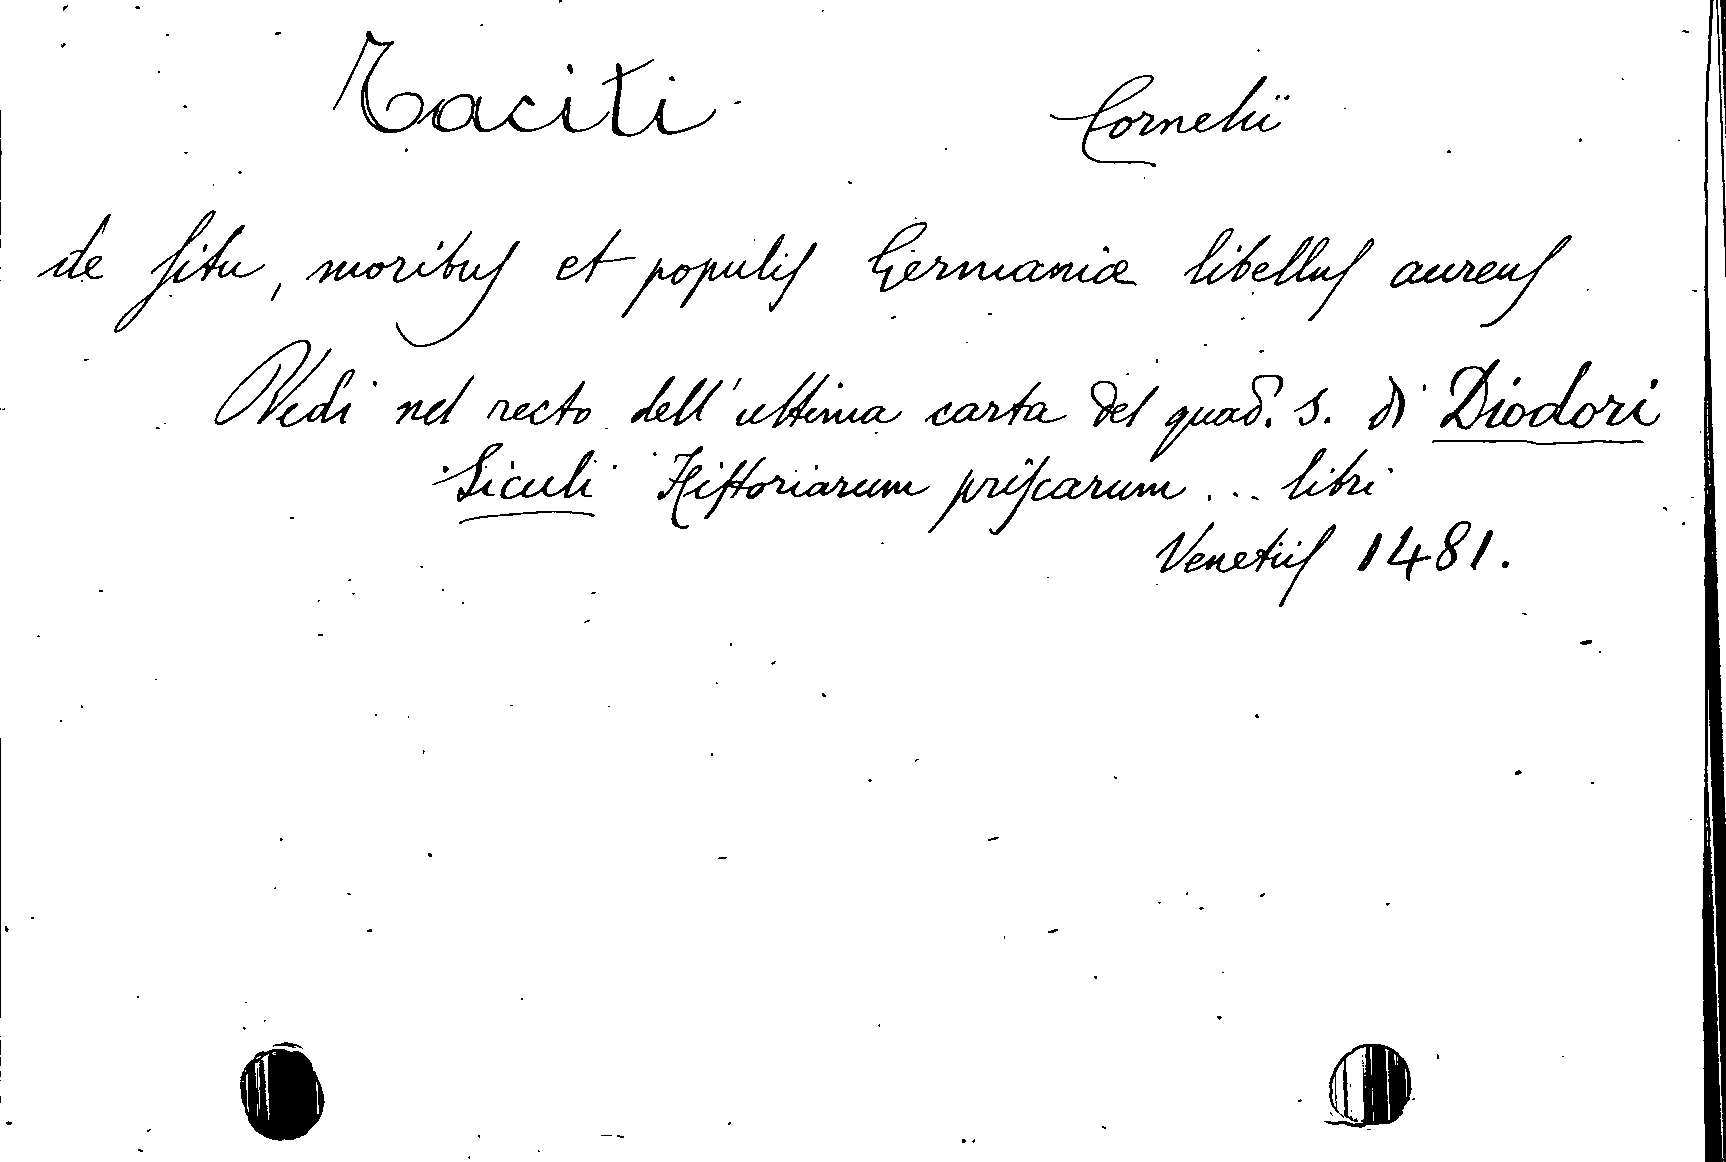 Taciti Cornelii
de situ, moribus et populis Germaniæ libellus aureus
Vedi nel recto dell'ultima carta del quad. s. di Diodori
Siculi Historiarum priscarum ... libri
Venetiis 1481.